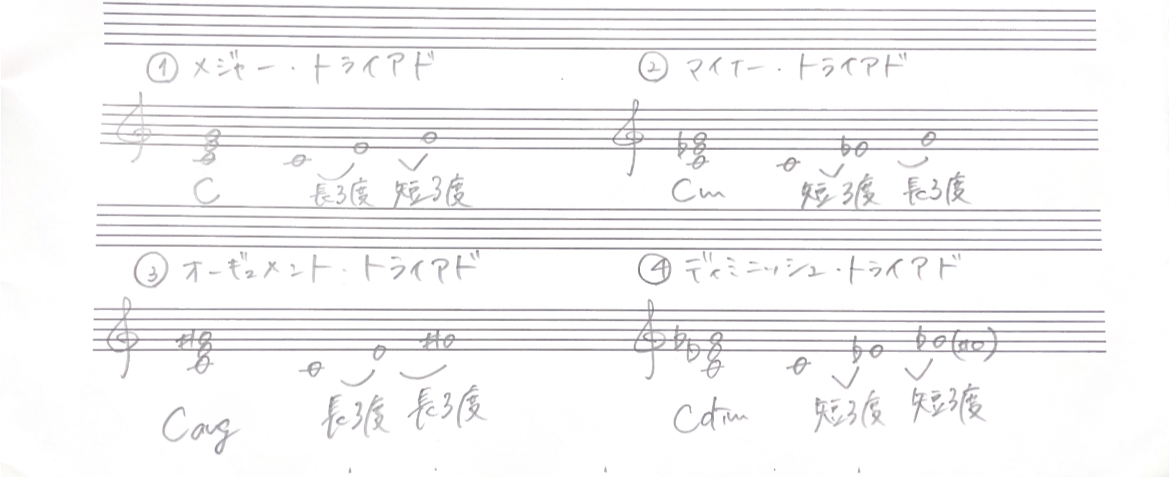 ① メジャー・トライアド
② マイナー・トライアド
C
長3度 短3度
Cm
短3度 長3度
③ オーギュメント・トライアド
④ ディミニッシュ・トライアド
Caug
長3度 長3度
Cdim
短3度 短3度